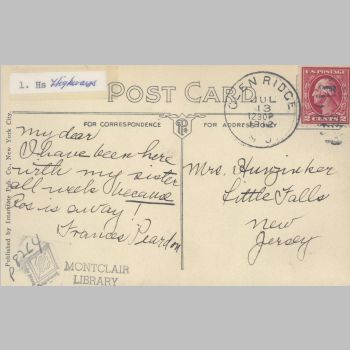 1. Hs Highways
POST CARD
FOR CORRESPONDENCE
FOR ADDRESS
GLEN RIDGE
JUL
13
1230P
N.J.
U.S. POSTAGE
2 CENTS 2
My dear
I have been here
with my sister
all week because
Ros is away!
Frances Peardon
Mrs. Hunziker
Little Falls
New
Jersey
Published by Interstate Co. New York City
P 8264
MONTCLAIR
LIBRARY